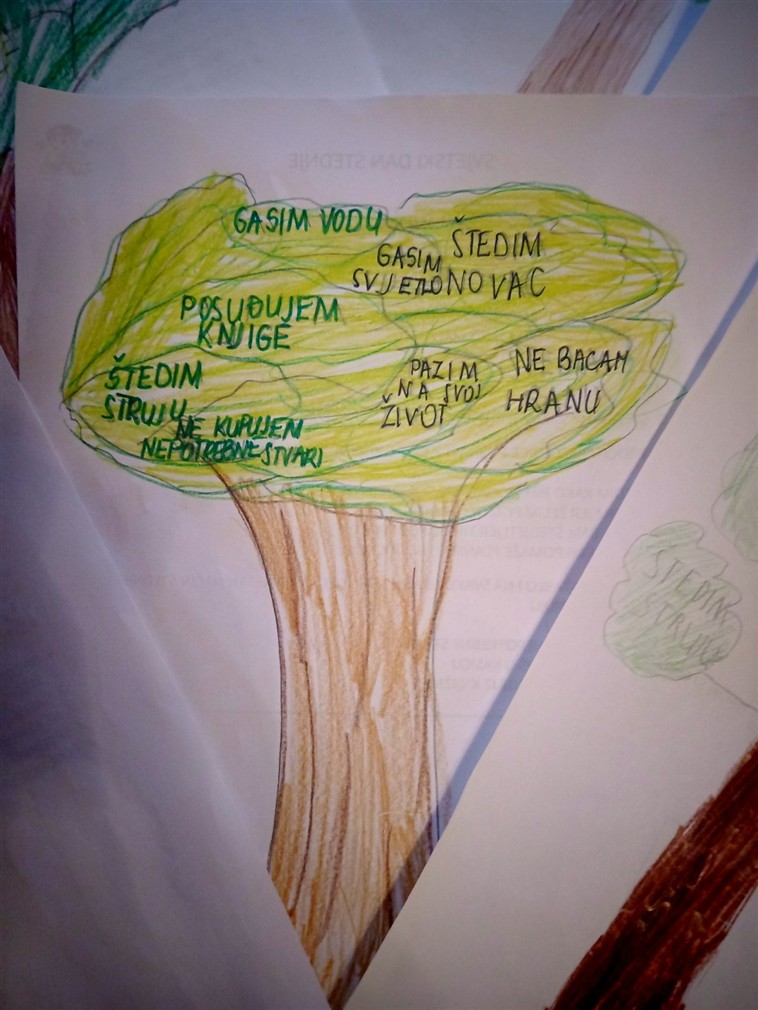 SVJETSKI DAN ŠTEDNJE
GASIM VODU
GASIM
SVJETLO
ŠTEDIM
NOVAC
POSUĐUJEM
KNJIGE
ŠTEDIM
STRUJU
PAZIM
NA SVOJ
ŽIVOT
NE BACAM
HRANU
NE KUPUJEM
NEPOTREBNE STVARI
ŠTEDIM
STRUJU